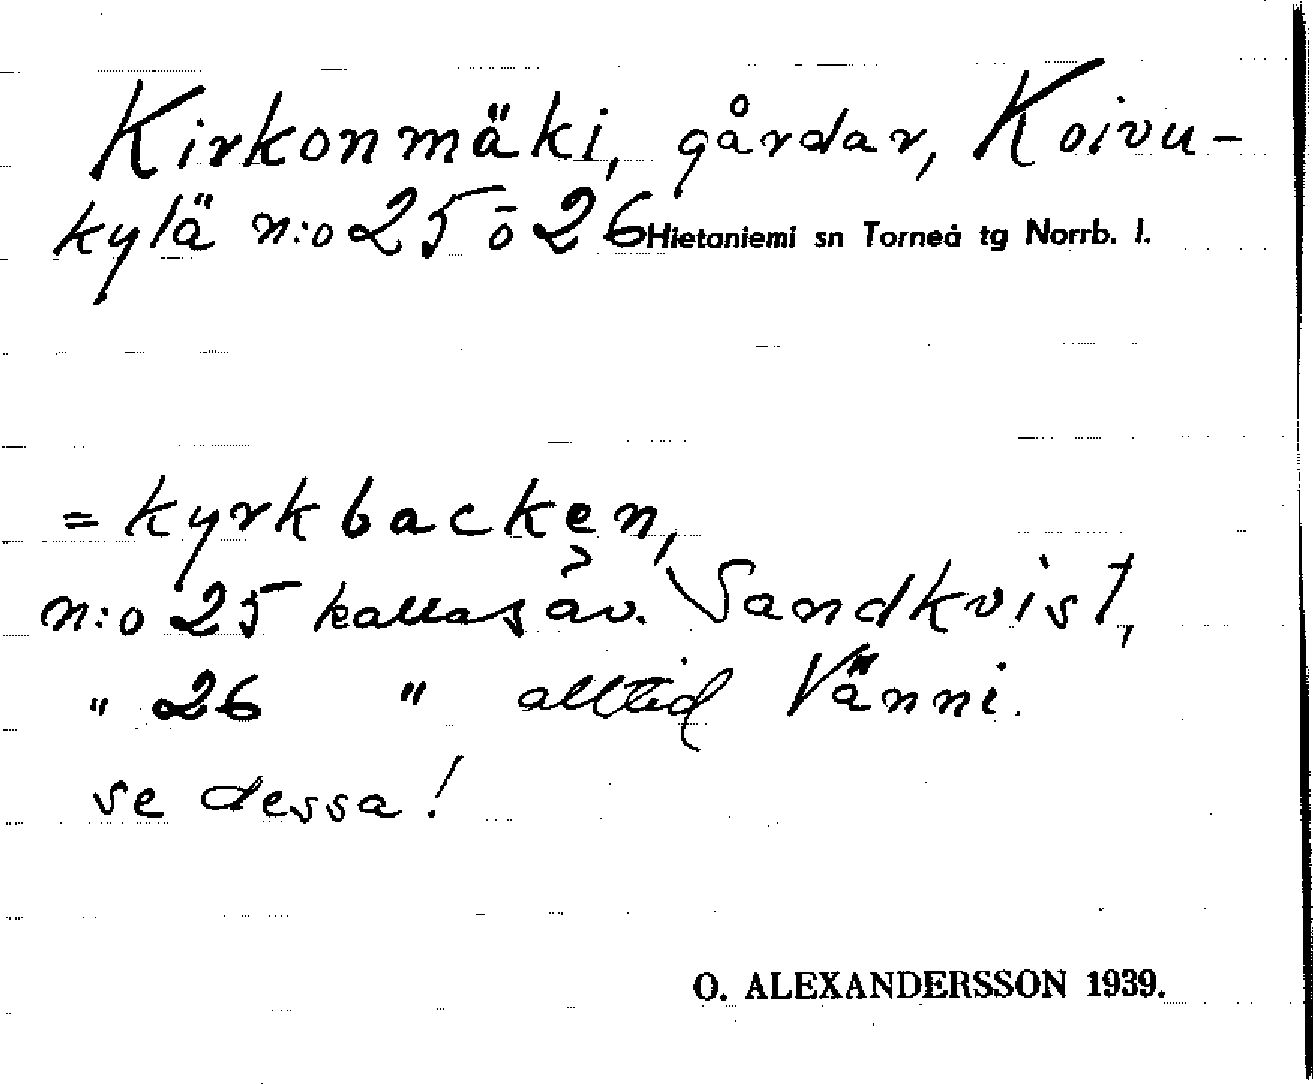 Kirkonmäki, gårdar, Koivu-
kylä n:o 25 o 26 Hietaniemi sn Torneå tg Norrb. l.
= kyrkbacken,
n:o 25 kallas äv. Sandkvist,
" 26 " alltid Vänni.
se dessa!
O. ALEXANDERSSON 1939.